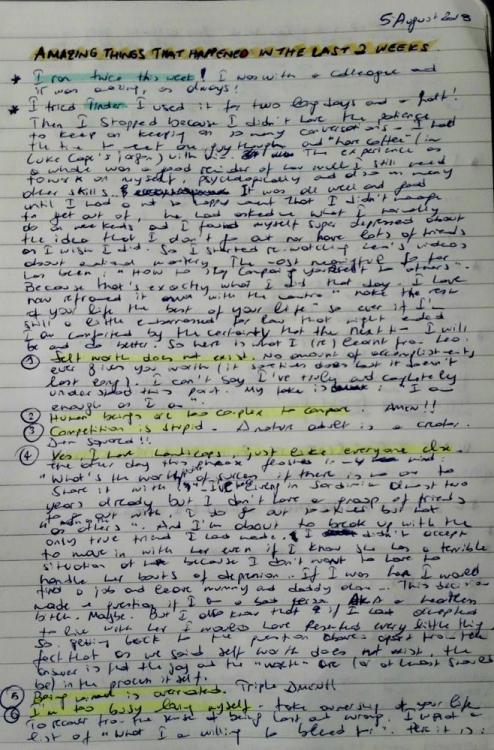 5 August 2018
AMAZING THINGS THAT HAPPENED IN THE LAST 2 WEEKS
* I ran twice this week! I was with a colleague and
it was amazing, as always!
* I tried Tinder. I used it for two long days and a half!
Then I stopped because I didn't have the patience
to keep on keeping on so many conversations. I had
the time to meet one guy though and "have coffee" (in
Luke Cage's jargon) with The experience as
a whole was a good reminder of how much I still need
to work on myself, psychologically and also on many
other skills. It was all well and good
until I had a not so happy moment that I didn't manage
to get out of. he had asked me what I normally
do on weekends and I found myself super depressed about
the idea that I don't go out nor have lots of friends
as I wish I did. So I started re-watching videos
about The most meaningful so far
has been: "How to stop comparing yourself to others".
Because that's exactly what I did that day. I have
now reframed it with the mantra "make the rest
of your life the best of your life" so even if I'm
still a little embarrassed for how that night ended
I am comforted by the certainty that the next time I will
be and do better. So here is what I (re)learnt from
① Self worth does not exist. No amount of accomplishments
ever gives you worth (it sometimes does but it doesn't
last long). I can't say I've truly and completely
understood this part. My take is I am
enough as I am.
② Human beings are too complex to compare. Amen!!
③ Competition is stupid. A mature adult is a creator.
Amen squared!!
④ Yes, I have handicaps, just like everyone else.
The other day this phrase flashes in my mind:
"What's the worth of success if there is no one to
share it with?" I've been living in Sardinia almost two
years already but I don't have a group of friends
to hang out with. I do go out sometimes but not
as others". And I'm about to break up with the
only true friend I had made. I didn't accept
to move in with her even if I know she has a terrible
situation at because I don't want to have to
handle her bouts of depression. If I was her I would
find a job and leave mummy and daddy alone. This decision
made me question if I am a heartless
bitch. Maybe. But I also know that if I had accepted
to live with her I would have resented every little thing.
So, getting back to the question above: apart from the
fact that as we said self worth does not exist, the
answer is that the joy and the "worth" are (or at least should
be) in the process itself.
⑤ Being normal is overrated. Triple Amen!!
⑥ I'm too busy being myself - take ownership of your life
to recover from the sense of being lost and wrong. I wrote a
list of "What I am willing to bleed for". Here it is: